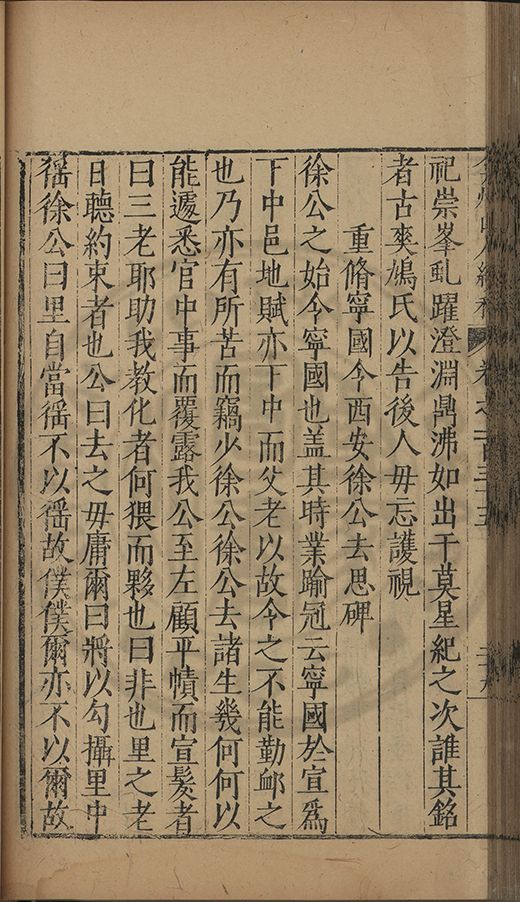 祀崇峯虬躍澄淵鼎沸如出干莫星紀之次誰其銘
者古爽鳩氏以告後人毋忘護視
重脩寧國令西安徐公去思碑
徐公之始令寧國也盖其時業踰冠云寧國於宣爲
下中邑地賦亦下中而父老以故令之不能勤邮之
也乃亦有所苦而竊少徐公徐公去諸生幾何何以
能遽悉官中事而覆露我公至左顧平幘而宣髮者
曰三老耶助我教化者何猥而夥也曰非也里之老
日聽約束者也公曰去之毋庸爾曰將以勾攝里中
徭徐公曰里自當徭不以徭故僕僕爾亦不以爾故